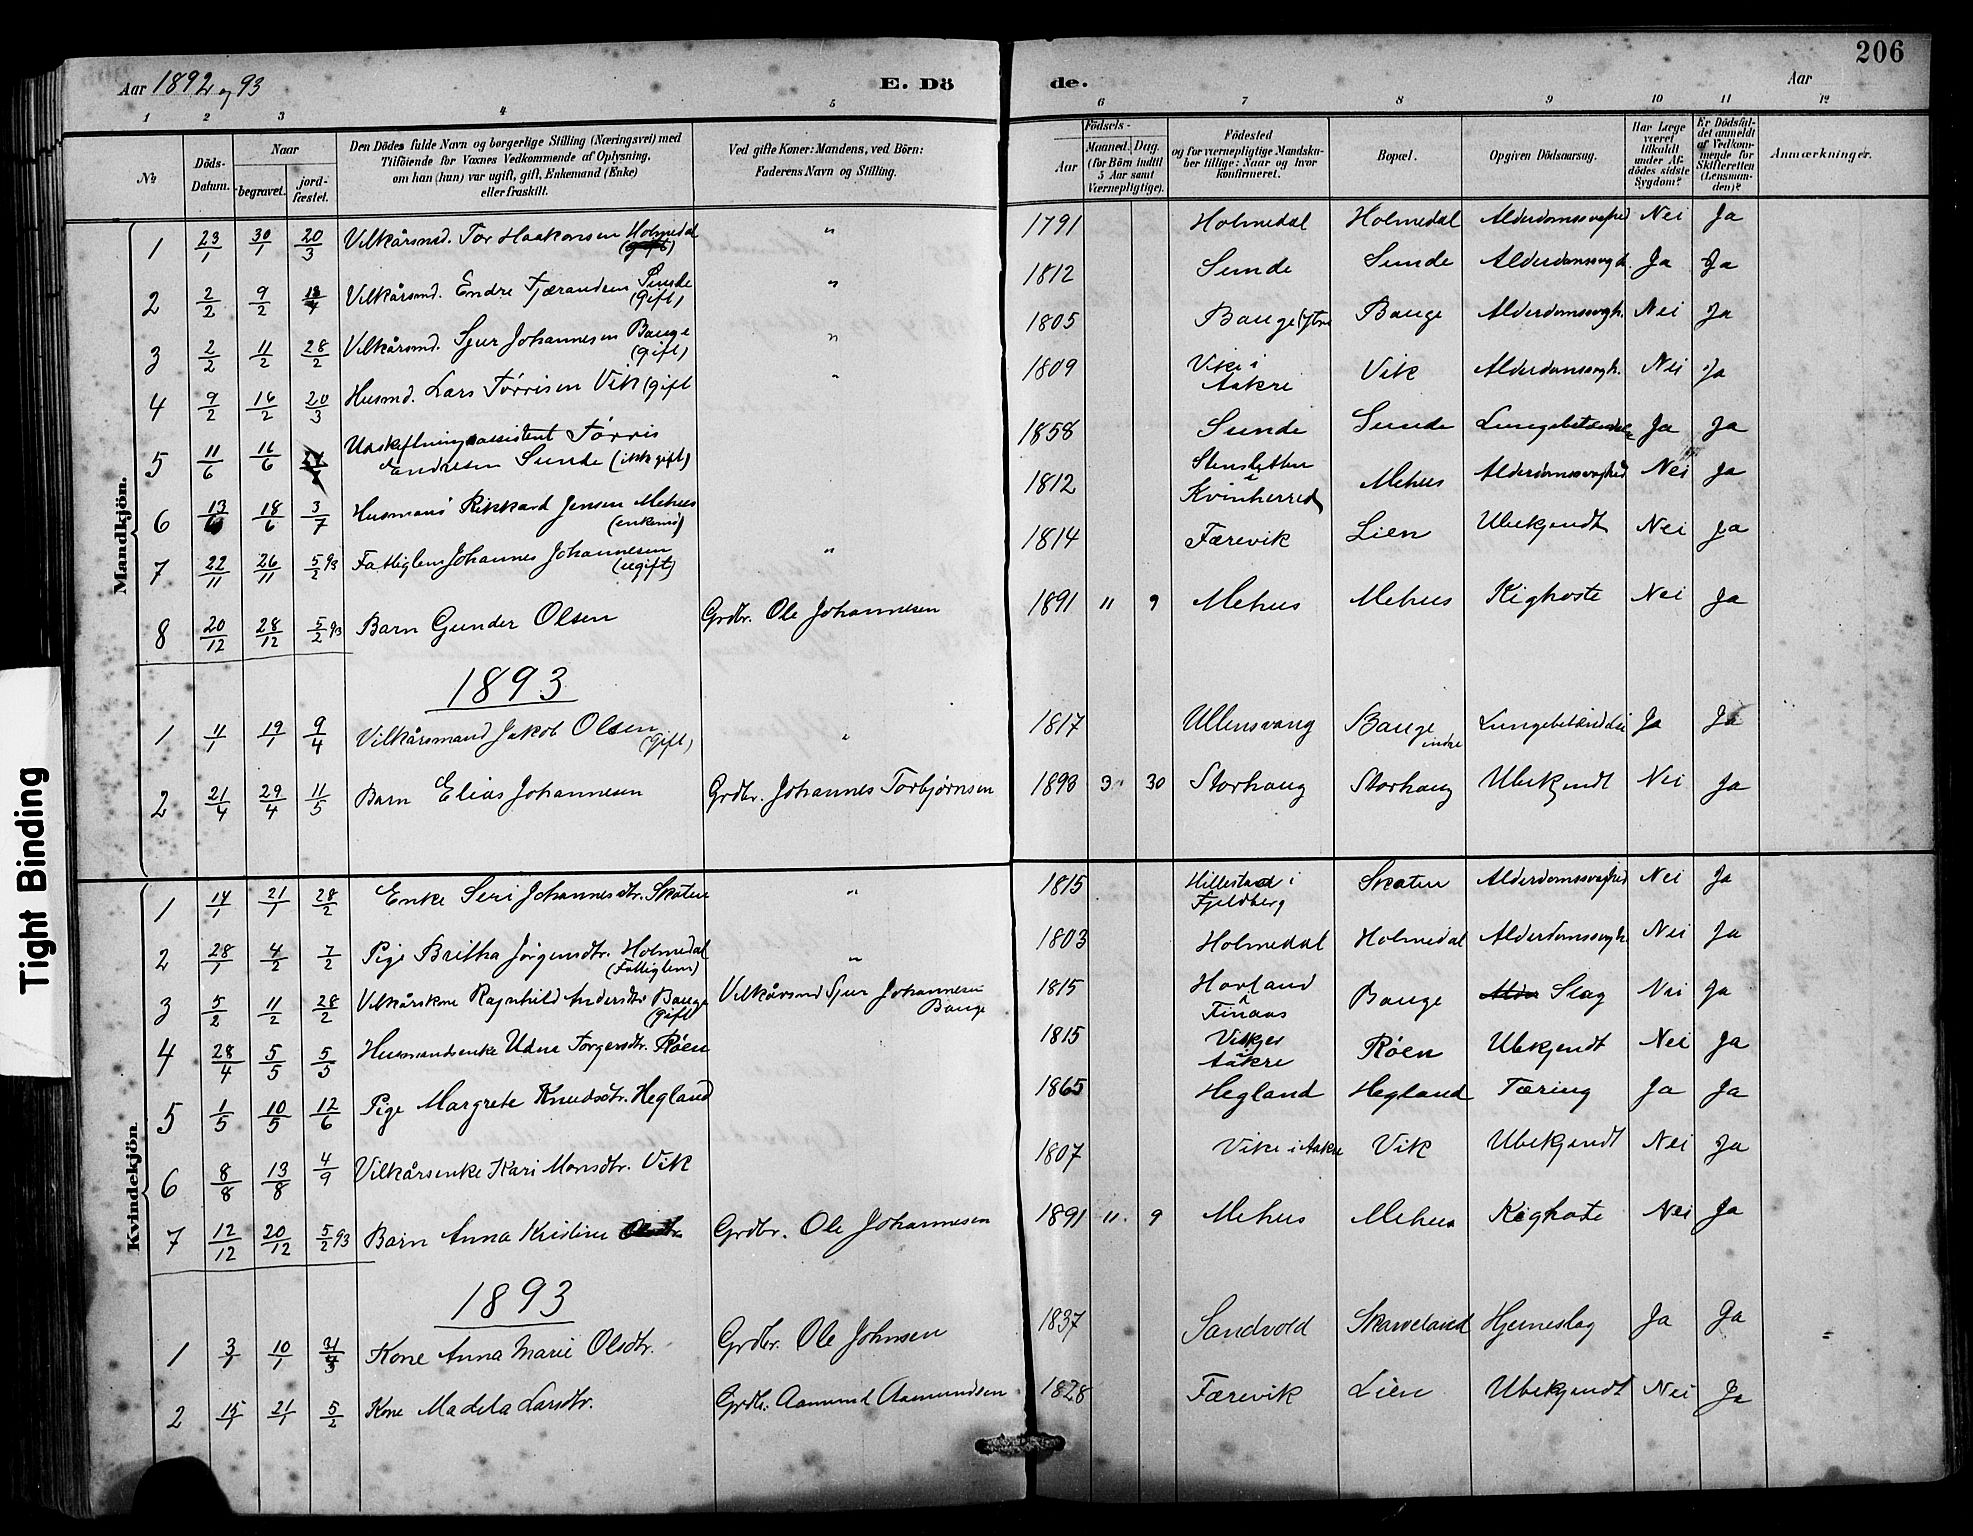 206
Aar 1892 og 93
E. Dö
de.
Aar
1 2 3 4 5 6 7 8 9 10 11 12
№
Döds-Datum.
Naar
begravet.
jord-fæstet.
Den Dödes fulde Navn og borgerlige Stilling (Næringsvei) med
Tilföiende for Voxnes Vedkommende af Oplysning,
om han (hun) var ugift, gift, Enkemand (Enke)
eller fraskilt.
Ved gifte Koner: Mandens, ved Börn:
Faderens Navn og Stilling.
Födsels-
Aar
Maaned.
Dag.
(for Börn indtil
5 Aar samt
Værnepligtige).
Födested
og for værnepligtige Mandsku-
ber tillige: Naar og hvor
konfirmeret.
Bopæl.
Opgiven Dödsaarsag.
Har Læge
været
tilkaldt
under Af-
dödes sidste
Sygdom?
Er Dödsfal-
det anmeldt
af Vedkom-
mende for
Skifteretten
(Lensman-
den)?
Anmærkninger.
Mandkjön.
1 23/1 30/1 20/3 Vilkårsmd. Tor Haakonsen Holmedal (gift) " 1791 Holmedal Holmedal Alderdomssvaghed Nei Ja
2 2/2 9/2 Vilkårsmd. Endre Tjærandsen Sunde (gift) " 1812 Sunde Sunde Alderdomssvagh. Ja Ja
3 2/2 11/2 28/2 Vilkårsmd. Sjur Johannesen Bauge (gift) " 1805 Bauge (ytre Bauge Alderdomssvagh. Nei Ja
4 9/2 16/2 20/3 Husmd. Lars Tørrisen Vik (gift " 1809 Vike i Aakre Vik Alderdomssvagh. Nei Ja
5 11/6 16/6 Udskiftningsassistent Tørris Endresen Sunde (ikke gift) 1858 Sunde Sunde Lungebetændelse Ja Ja
6 13/6 18/6 3/7 Husmand Rikkard Jensen Mehus (enkem) 1812 Stensletten i Kvinherred Mehus Alderdomssvaghed Nei Ja
7 22/11 26/11 5/2 93 Fattiglem Johannes Johannesen (ugift) " 1814 Færevik Lien Ubekjendt Nei Ja
8 20/12 28/12 5/2 93 Barn Gunder Olsen Grdbr. Ole Johannesen 1891 11 9 Mehus Mehus Kighoste Nei Ja
1893
1 11/1 19/1 9/4 Vilkårsmand Jakob Olsen (gift) " 1817 Ullensvang Bauge indre Lungebetændelse Ja Ja
2 21/4 29/4 11/5 Barn Elias Johannesen Grdbr. Johannes Torbjørnsen 1893 3 30 Storhaug Storhaug Ubekjendt Nei Ja
Kvindekjön
1 14/1 21/1 28/2 Enke Seri Johannesdtr. Skaten " 1815 Hillestad i Fjeldberg Skaten Alderdomssvaghed Nei Ja
2 28/1 4/2 7/2 Pige Britha Jörgensdtr. Holmedal (Fattiglem) " 1803 Holmedal Holmedal Alderdomssvagh. Nei Ja
3 5/2 11/2 28/2 Vilkårskone Ragnhild Andersdtr Bauge (gift Vilkårsmd Sjur Johannesen Bauge 1815 Hovland i Finaas Bauge Slag Nei Ja
4 28/4 5/5 5/5 Husmandsenke Udne Torgersdtr. Røen 1815 Aakre Røen Ubekjendt Nei Ja
5 1/5 10/5 12/6 Pige Margrete Knudsdtr. Hegland 1865 Hegland Hegland Tæring Ja Ja
6 8/8 13/8 4/9 Vilkårsenke Kari Monsdtr. Vik 1807 Vike i Aakre Vik Ubekjendt Nei Ja
7 12/12 20/12 5/2 93 Barn Anna Kristine Grdbr. Ole Johannesen 1891 11. 9 Mehus Mehus Kighoste Nei Ja
1893
1 3/1 10/1 Kone Anna Marie Olsdtr. Grdbr. Ole Johnsen 1837 Sandvold Skarveland Hjerneslag Ja Ja
2 15/1 21/1 5/2 Kone Madela Larsdtr. Grdbr. Aamund Aamundsen 1828 Færevik Lien Ubekjendt Nei Ja
Tight Binding